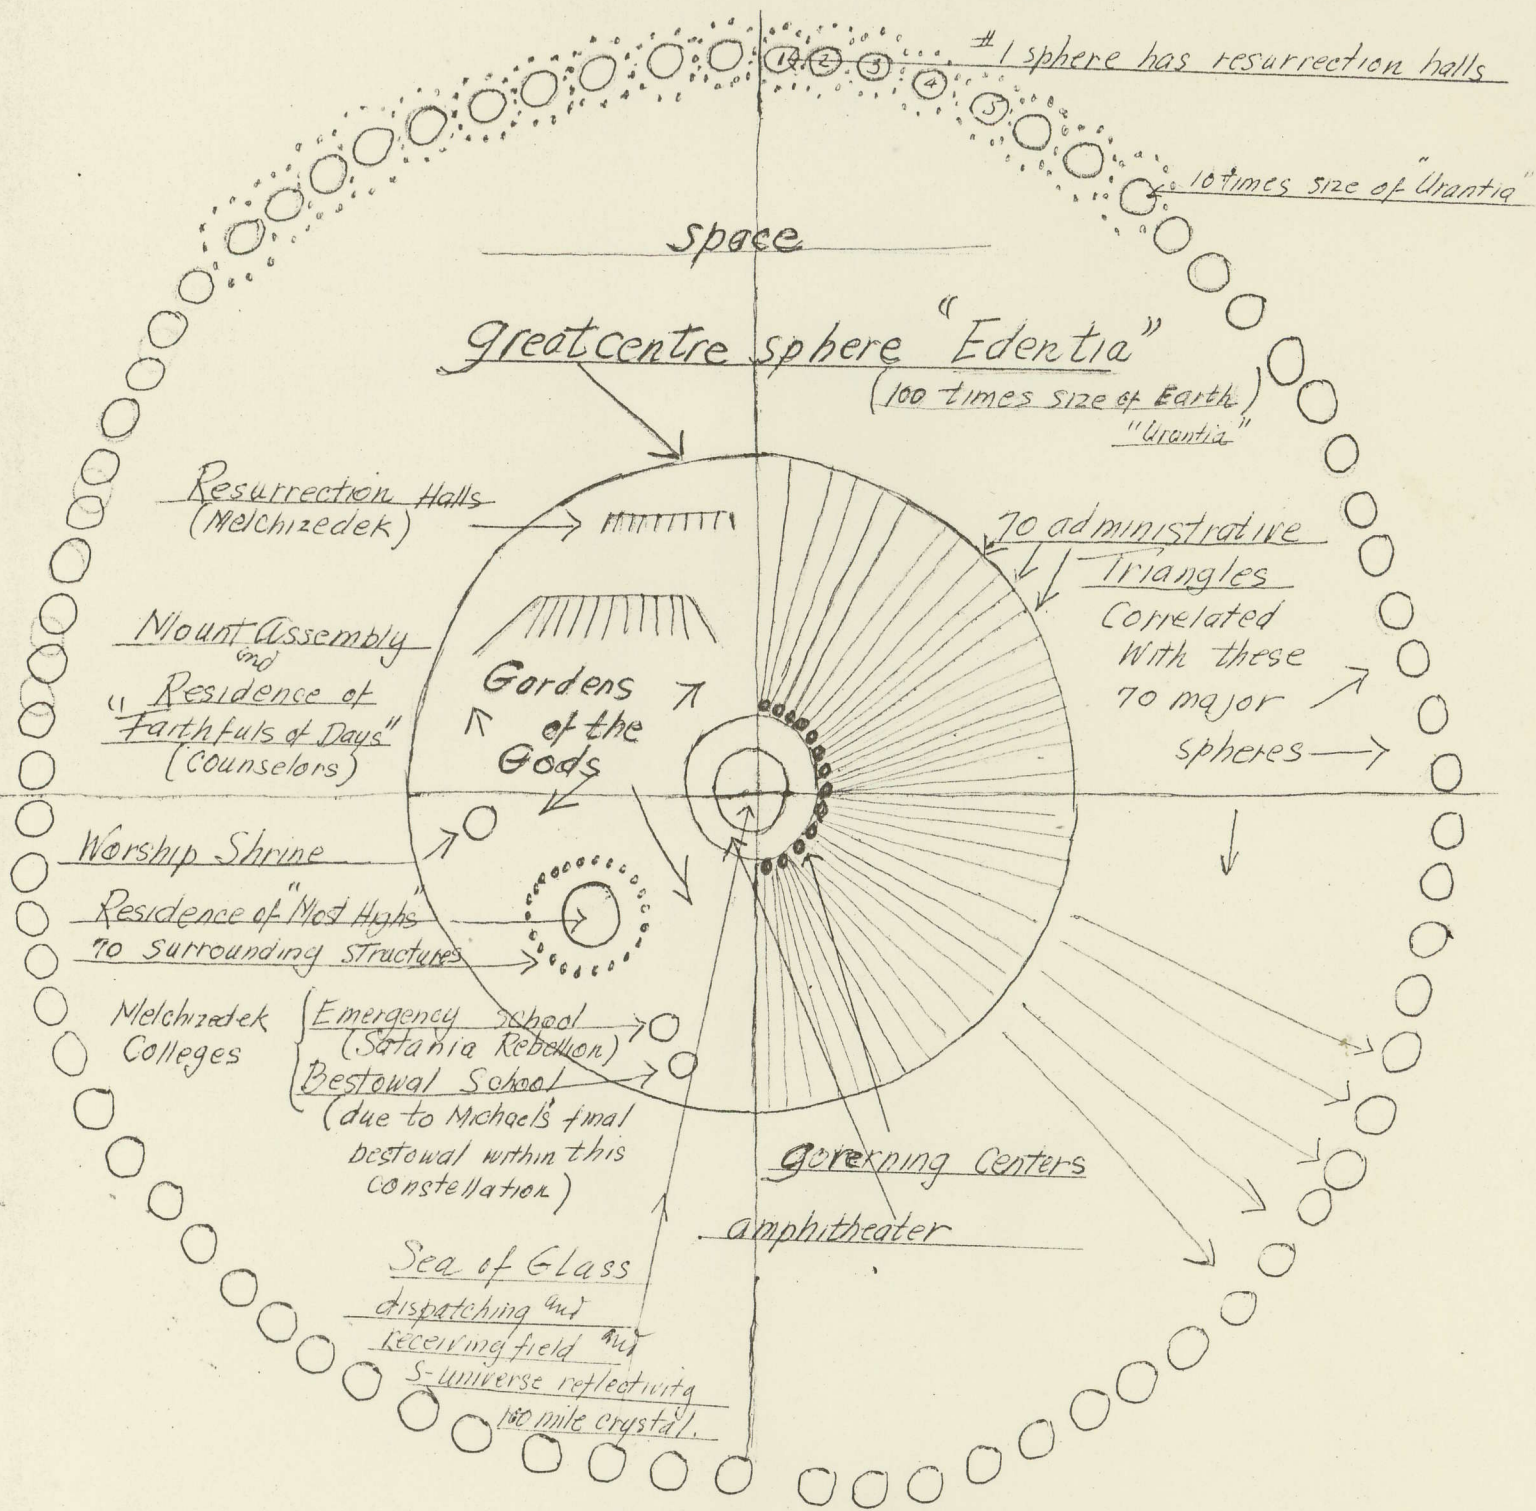 1 2 3 4 5
#1 sphere has resurrection halls
10 times size of "Urantia"
space
great centre sphere "Edentia"
(100 times size of Earth)
"Urantia"
Resurrection Halls
(Melchizedek)
70 administrative
Triangles
Correlated
With these
70 major
spheres
Mount Assembly
and
Residence of
"Faithfuls of Days"
(Counselors)
Gardens
of the
Gods
Worship Shrine
Residence of "Most Highs"
70 surrounding structures
Melchizedek
Colleges
Emergency School
(Satania Rebellion)
Bestowal School
(due to Michael's final
bestowal within this
constellation)
governing Centers
amphitheater
Sea of Glass
dispatching and
receiving field and
S-universe reflectivity
100 mile crystal.